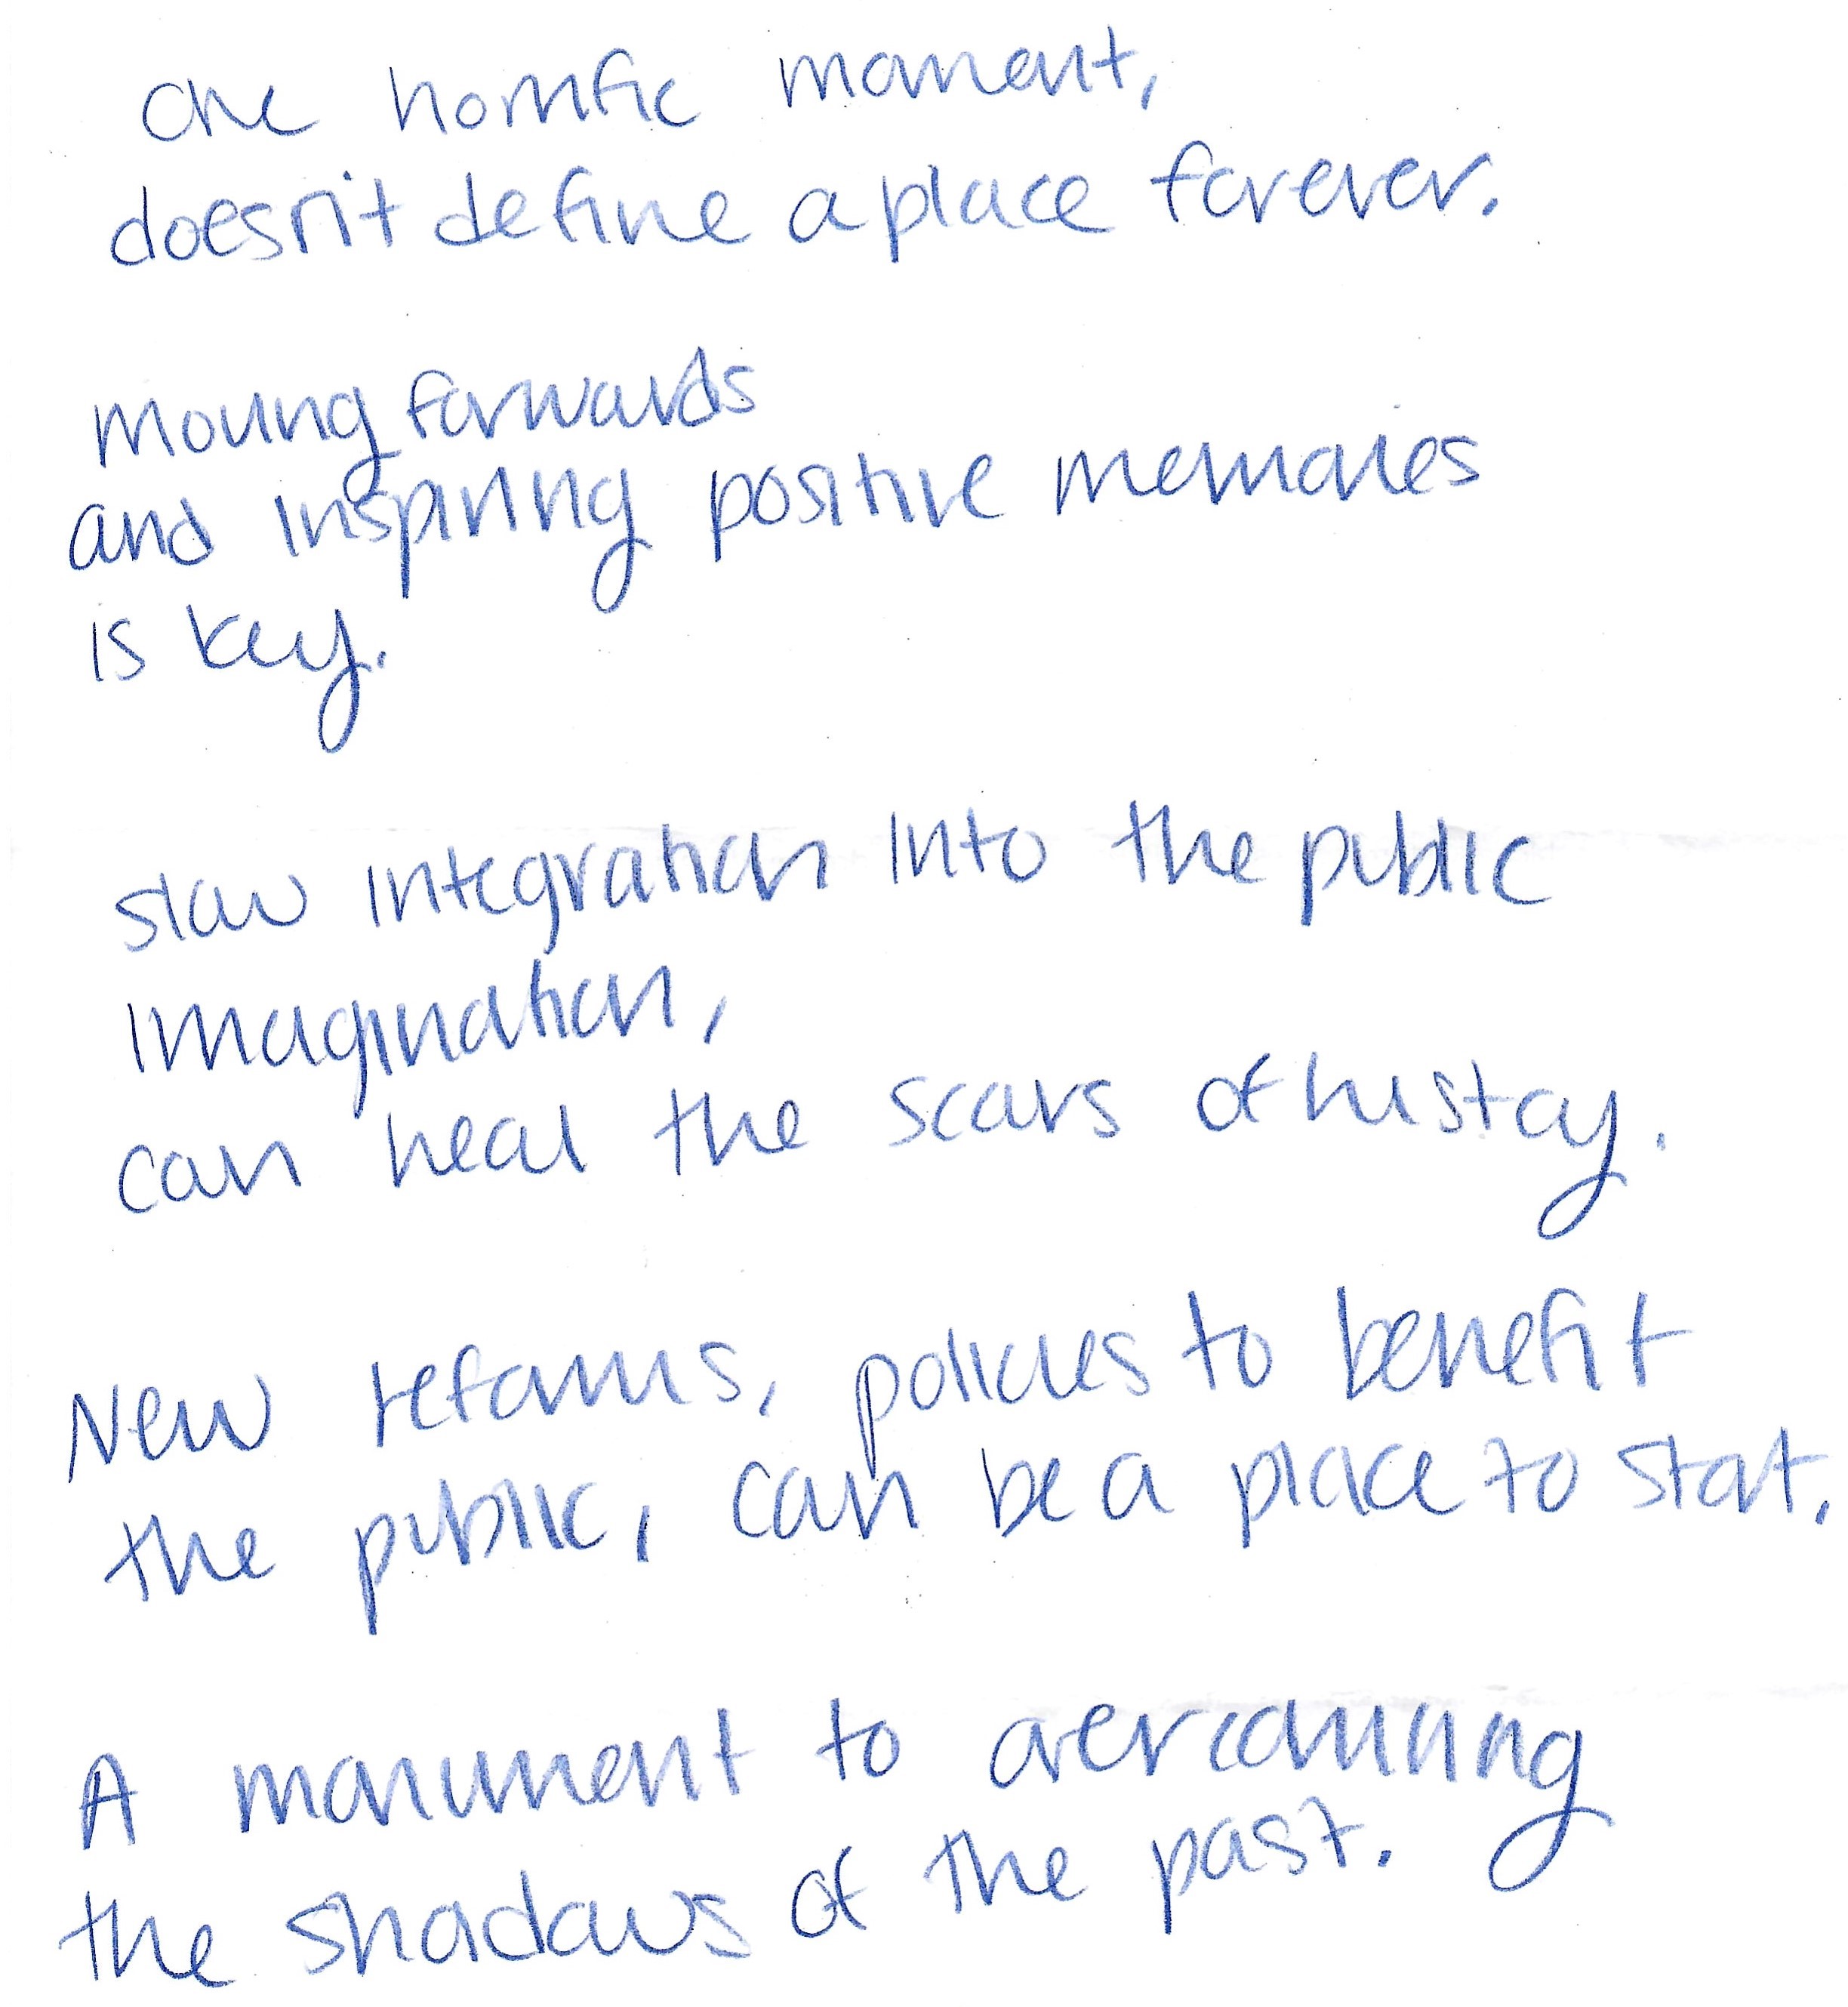 One horrific moment,
doesn't define a place forever.
Moving forwards
and inspiring positive memories
is key.
slow integration into the public
imagination,
can heal the scars of history.
New reforms, policies to benefit
the public, can be a place to start.
A monument to overcoming
the shadows of the past.